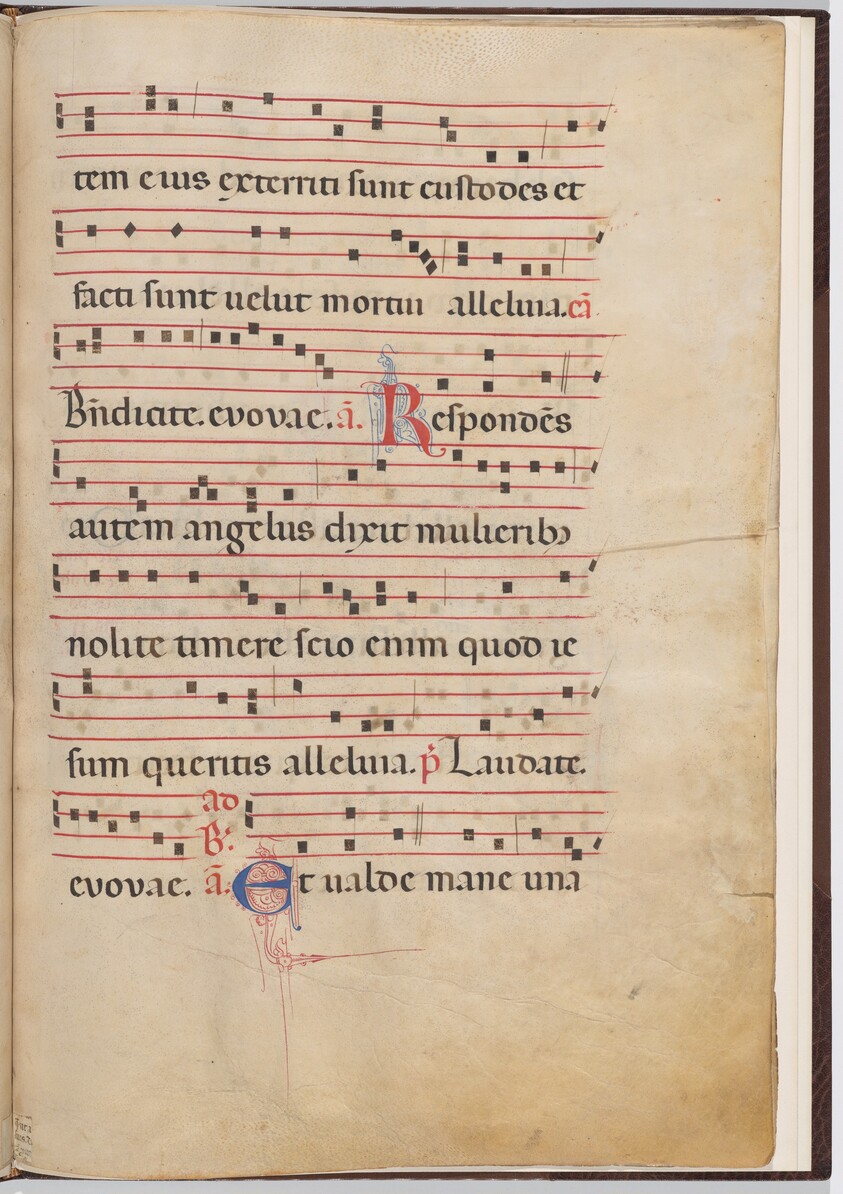 tem eius exterriti sunt custodes et
facti sunt uelut mortui alleluia. cā
Bn̄dicite. evovae. ā. Respondēs
autem angelus dixit mulieribꝰ
nolite timere scio enim quod ie
sum queritis alleluia. p̄ Laudate.
evovae. ad B. ā. Et ualde mane una